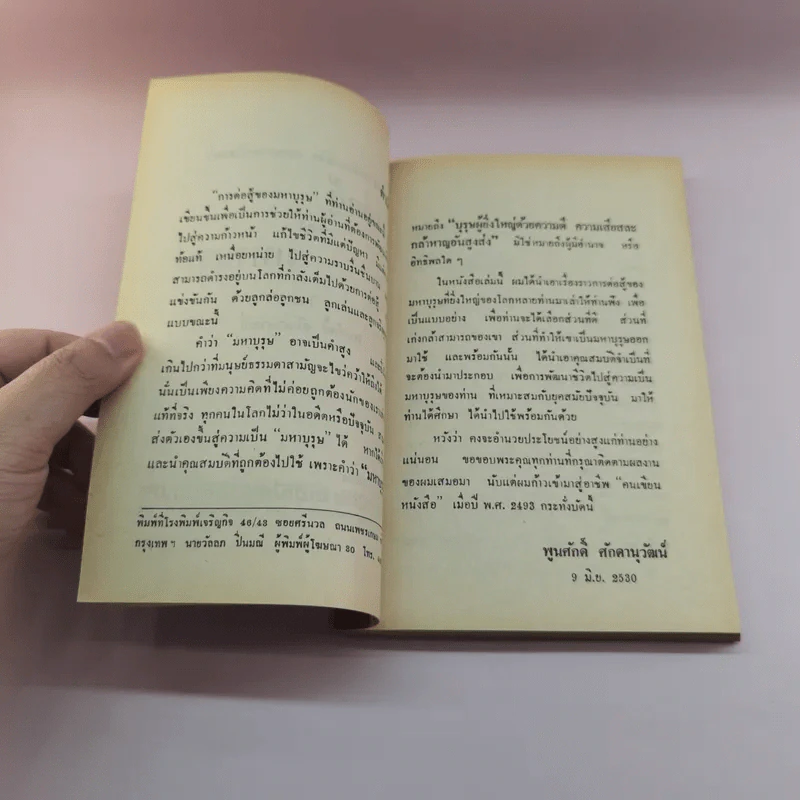 คำ
"การต่อสู้ของมหาบุรุษ" ที่ท่านอ่านอยู่ขณะนี้
เขียนขึ้นเพื่อเป็นการช่วยให้ท่านผู้อ่านที่ต้องการ
ไปสู่ความก้าวหน้า แก้ไขชีวิตที่มีแต่ปัญหา
ท้อแท้ เหนื่อยหน่าย ไปสู่ความราบรื่นชื่นบาน
สามารถดำรงอยู่บนโลกที่กำลังเต็มไปด้วยการต่อสู้
แข่งขันกัน ด้วยลูกล่อลูกชน ลูกเล่นและลูก
แบบขณะนี้
คำว่า "มหาบุรุษ" อาจเป็นคำสูง
เกินไปกว่าที่มนุษย์ธรรมดาสามัญจะไขว่คว้าให้ถึงได้
นั่นเป็นเพียงความคิดที่ไม่ค่อยถูกต้องนักของเรา
แท้ที่จริง ทุกคนในโลกไม่ว่าในอดีตหรือปัจจุบัน
ส่งตัวเองขึ้นสู่ความเป็น "มหาบุรุษ" ได้ หาก
และนำคุณสมบัติที่ถูกต้องไปใช้ เพราะคำว่า "มหาบุรุษ
พิมพ์ที่โรงพิมพ์เจริญกิจ 46/43 ซอยศรีนวล ถนนเพชรเกษม
กรุงเทพฯ นายวัลลภ ปิ่นมณี ผู้พิมพ์ผู้โฆษณา 30 โทร.
หมายถึง "บุรุษผู้ยิ่งใหญ่ด้วยความดี ความเสียสละ
กล้าหาญอันสูงส่ง" มิใช่หมายถึงผู้มีอำนาจ หรือ
อิทธิพลใด ๆ
ในหนังสือเล่มนี้ ผมได้นำเอาเรื่องราวการต่อสู้ของ
มหาบุรุษที่ยิ่งใหญ่ของโลกหลายท่านมาเล่าให้ท่านฟัง เพื่อ
เป็นแบบอย่าง เพื่อท่านจะได้เลือกส่วนที่ดี ส่วนที่
เก่งกล้าสามารถของเขา ส่วนที่ทำให้เขาเป็นมหาบุรุษออก
มาใช้ และพร้อมกันนั้น ได้นำเอาคุณสมบัติจำเป็นที่
จะต้องนำมาประกอบ เพื่อการพัฒนาชีวิตไปสู่ความเป็น
มหาบุรุษของท่าน ที่เหมาะสมกับยุคสมัยปัจจุบัน มาให้
ท่านได้ศึกษา ได้นำไปใช้พร้อมกันด้วย
หวังว่า คงจะอำนวยประโยชน์อย่างสูงแก่ท่านอย่าง
แน่นอน ขอขอบพระคุณทุกท่านที่กรุณาติดตามผลงาน
ของผมเสมอมา นับแต่ผมก้าวเข้ามาสู่อาชีพ "คนเขียน
หนังสือ" เมื่อปี พ.ศ. 2493 กระทั่งบัดนี้
พูนศักดิ์ ศักดานุวัฒน์
9 มิ.ย. 2530